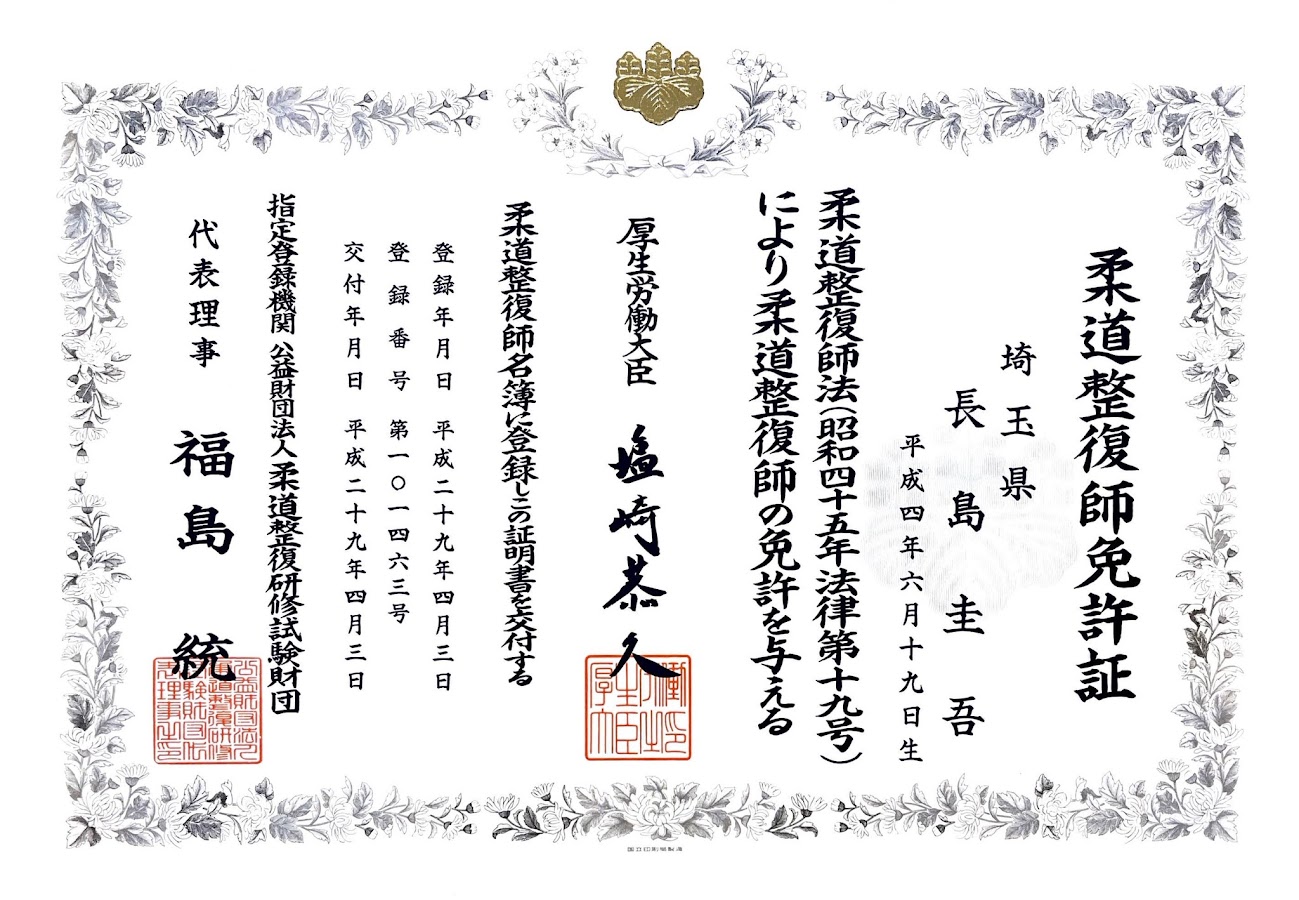 柔道整復師免許証
埼玉県
長島圭吾
平成四年六月十九日生
柔道整復師法(昭和四十五年法律第十九号)
により柔道整復師の免許を与える
厚生労働大臣 塩崎恭久
柔道整復師名簿に登録しこの証明書を交付する
登録年月日 平成二十九年四月三日
登録番号 第一〇一四六三号
交付年月日 平成二十九年四月三日
指定登録機関 公益財団法人 柔道整復研修試験財団
代表理事 福島統
国立印刷局製造